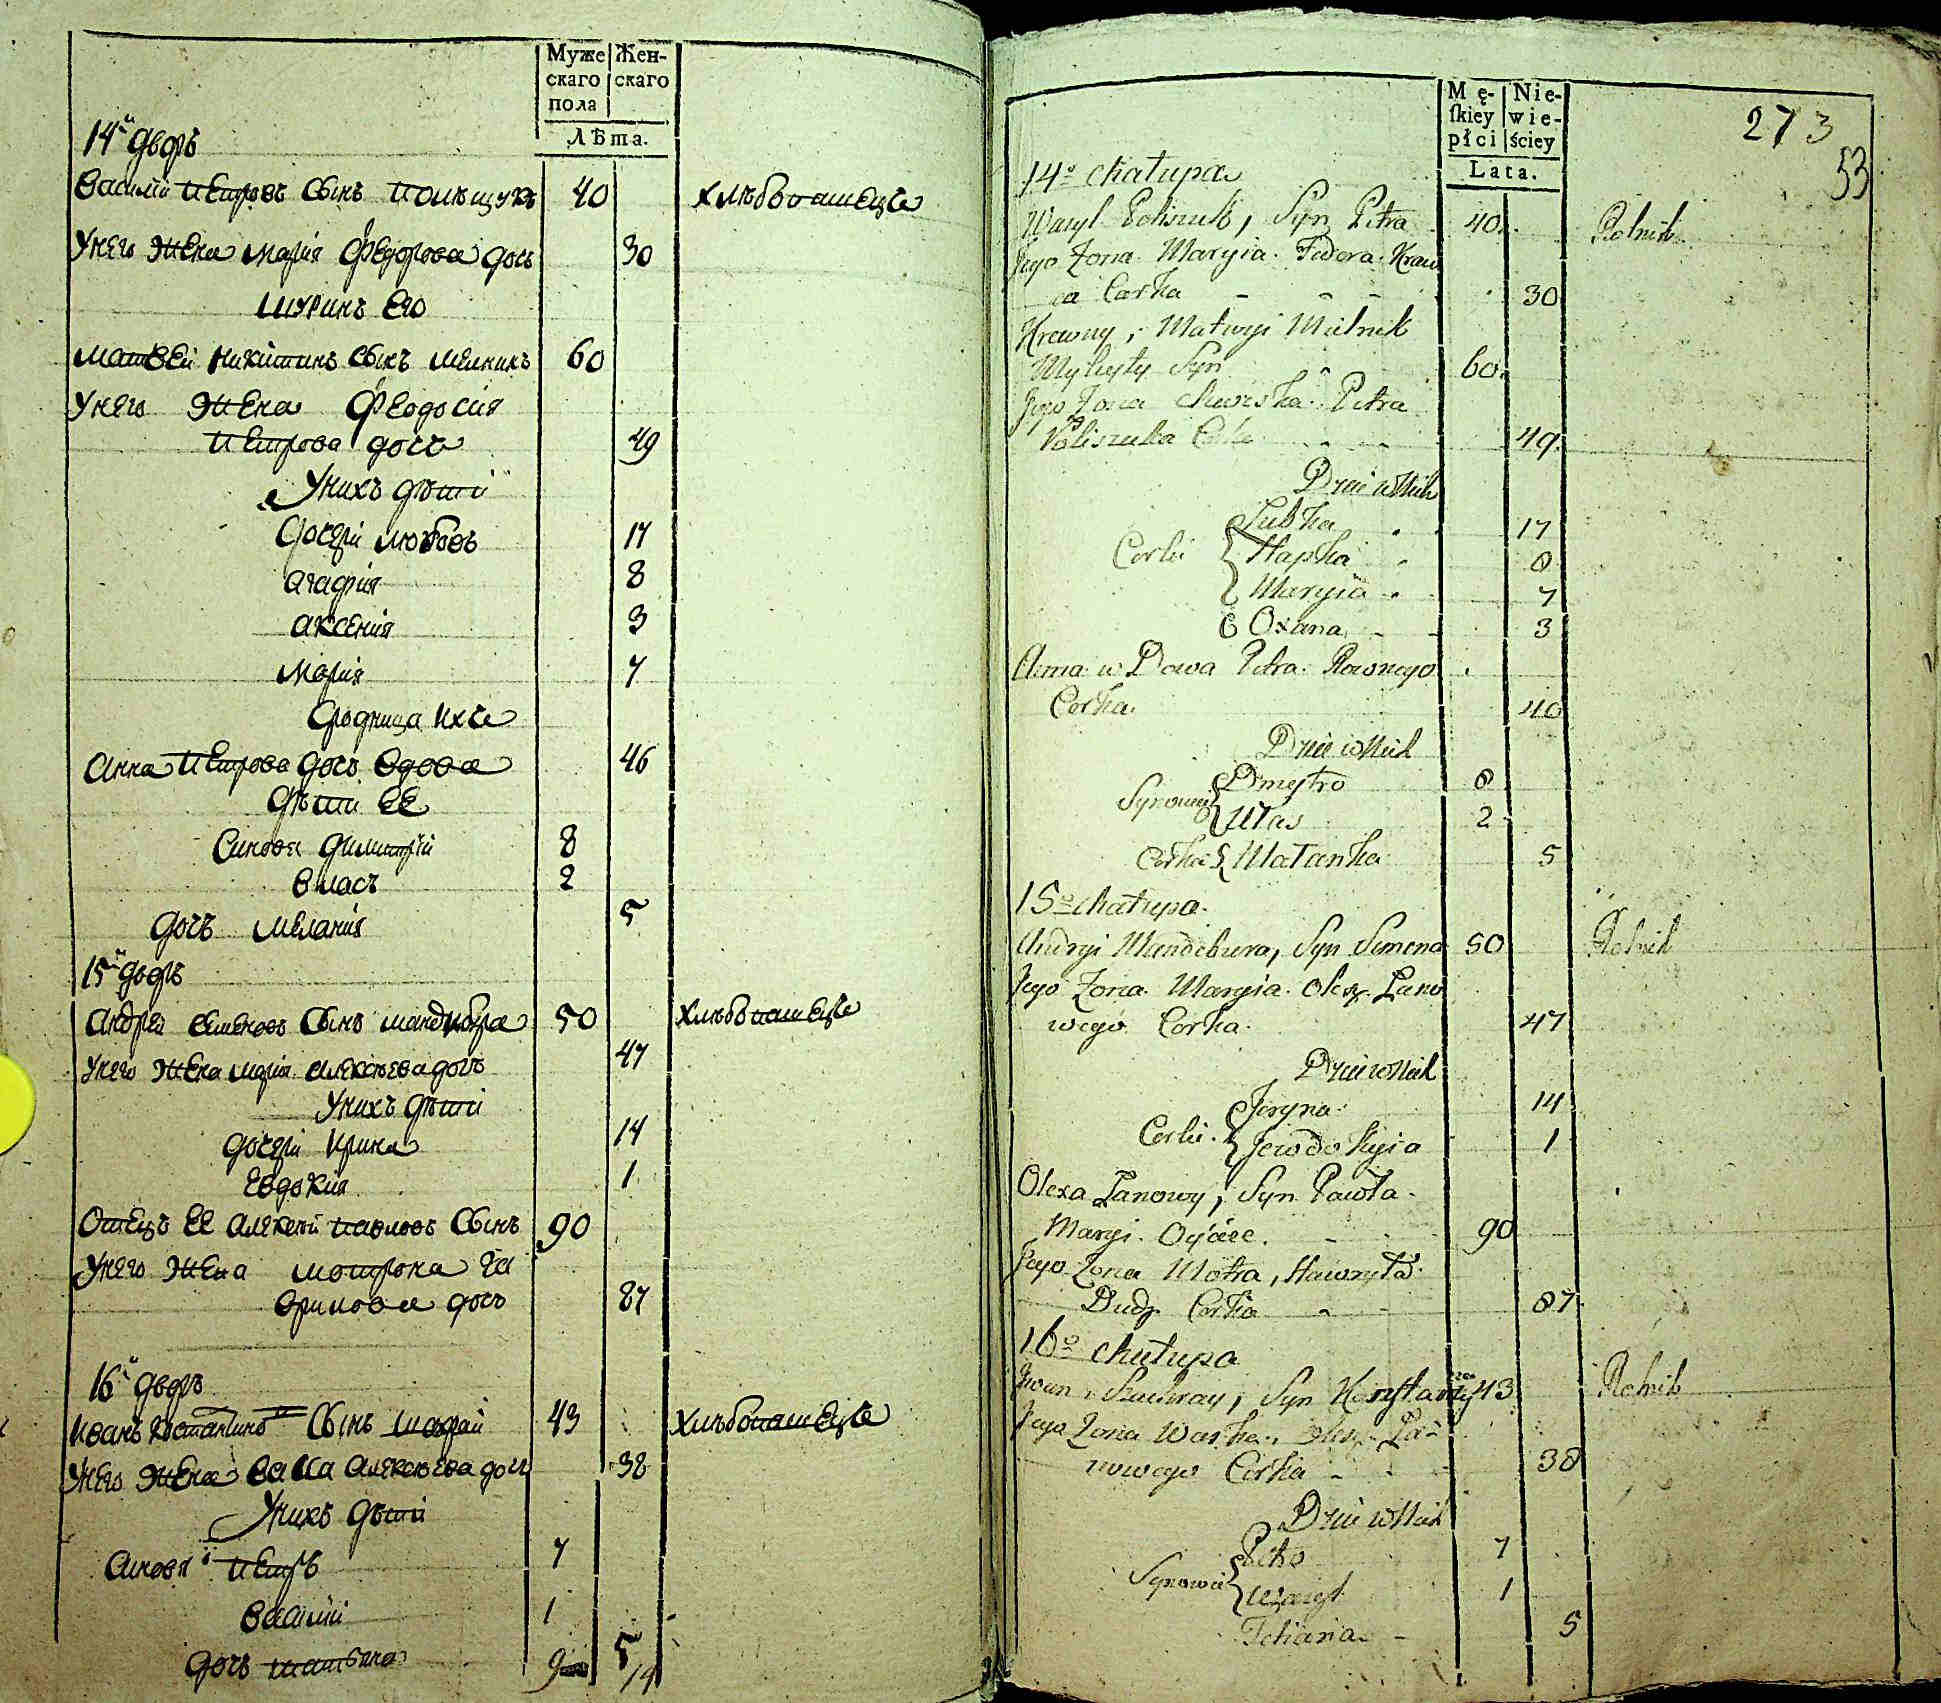 Муже
скаго
пола
Жен-
скаго
Лѣта.
14й дворъ
Василий Петровъ сынъ Полѣщукъ 40 хлѣбопашецъ
У него жена Мария Федорова дочь 30
шуринъ его
Матвей Никитинъ сынъ Мелникъ 60
У него жена Феодосия
Петрова дочь 49
У нихъ дѣти
Дочери Любовь 17
Агафия 8
Аксения 3
Мария 7
Сродница ихъ
Анна Петрова дочь вдова 46
дѣти ее
Синовя Димитрий 8
Власъ 2
дочь Мелания 5
15й дворъ
Андрей Семеновъ сынъ Мандибура 50 хлѣбопашецъ
У него жена Мария Алексѣева дочь 47
У нихъ дѣти
дочери Ирина 14
Евдокия 1
Отецъ ее Алексей Павловъ сынъ 90
У него жена Мотрона Га
врилова дочь 87
16й дворъ
Иванъ Костантиновъ сынъ Шахрай 43 хлѣбопашецъ
У него жена Васса Алексѣева дочь 38
У нихъ дѣти
Синовя Петръ 7
Василий 1
дочь Татияна 5
9 14
Mę-
ſkiey
płci
Nie-
wie-
ściey
Lata.
273
53
14o chałupa
Wasyl Poliszuk, Syn Petra 40 Rolnik
Jego Żona Maryia Fedora Kraw
ca Corka 30
Krewny, Matwyi Mielnik
Mykyty Syn 60
Jego Żona Petra
Poliszuka Corka 49
Dzieci w Nich
Corki Lubka 17
Hapka 8
Maryia 7
Oxana 3
Anna w Dowa Petra Rownego
Corka 40
Dzieci w Nich
Synowie Dmytro 8
Ułas 2
Corka Małanka 5
15o chałupa
Andryi Mandebura, Syn Semena 50 Rolnik
Jego Żona Maryia Olexy Pano
wego Corka 47
Dzieci w Nich
Corki Jaryna 14
Jewdokyia 1
Olexa Panowy, Syn Pawła
Maryi Oyciec 90
Jego Żona Motra, Hawryła
Dudy Corka 87
16o chałupa
Iwan Szachray, Syn Konstantego 43 Rolnik
Jego Żona Waska Olexy Pa-
nowego Corka 38
Dzieci w Nich
Synowie Petro 7
Wasyl 1
Tetiana 5